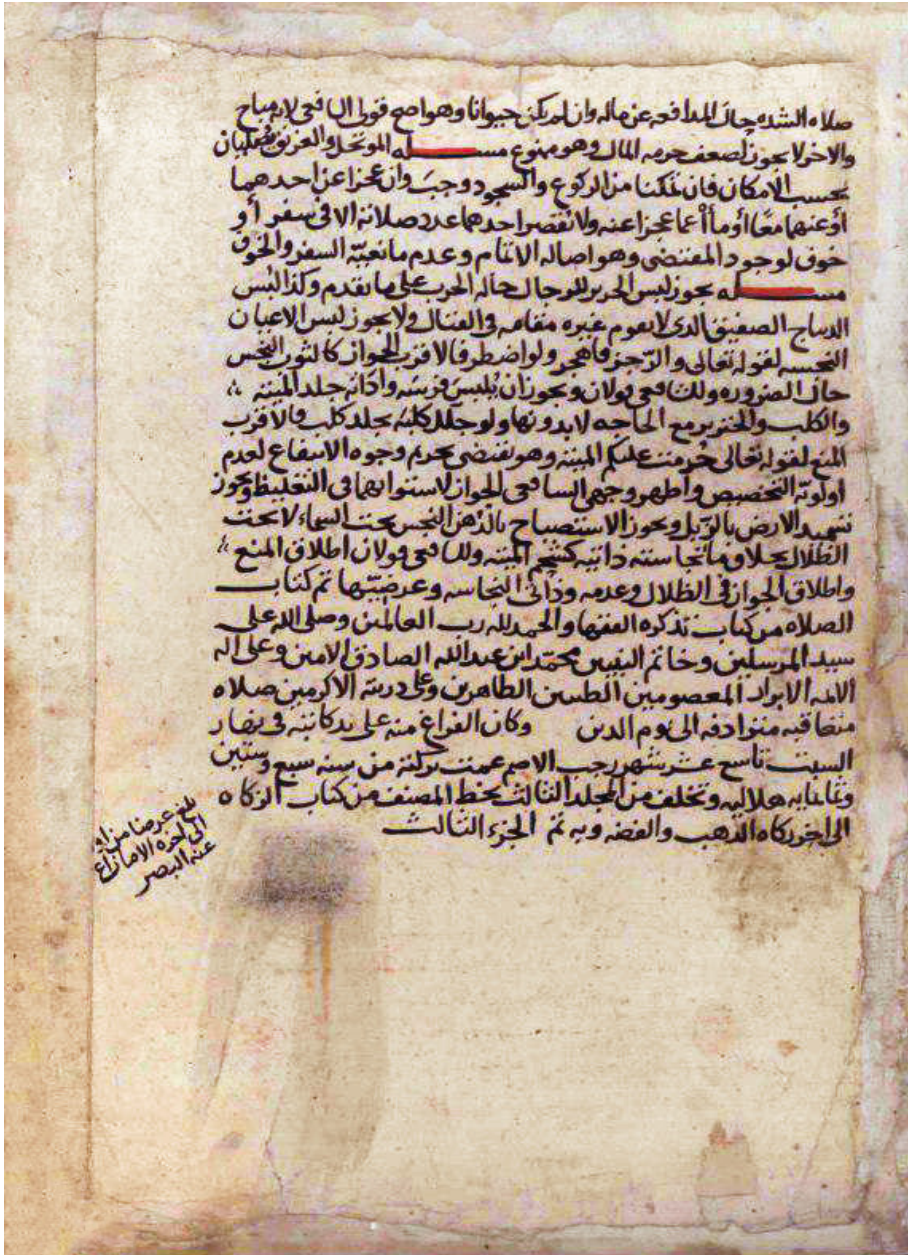 صلاه الشده حال المدافعه عن ماله وان لم يكن حيوانا وهو اصح قولى الشافعى لانه مباح
والاخر لا يجوز لضعف حرمه المال وهو ممنوع مسـله الموتحل والغريق يصليان
بحسب الامكان فان تمكنا من الركوع والسجود وجب وان عجزا عن احدهما
أو عنهما معًا أومأا عما عجزا عنه ولا يقصر احدهما عدد صلاته الا فى سفر أو
خوف لوجود المقتضى وهو اصاله الاتمام وعدم مانعيّه السفر والخوف
مسـله يجوز لبس الحرير للرجال حاله الحرب على ما تقدم وكذا لبس
الديباج الصفيق الذى لا يقوم غيره مقامه فى القتال ولا يجوز لبس الاعيان
النجسه لقوله تعالى والرّجز فاهجر ولو اضطر فالاقرب الجواز كالثوب النجس
حال الضروره وللشافعى قولان ويجوز ان يُلبس فرسه واداته جلد الميته
والكلب والخنزير مع الحاجه لا بدونها ولو جلل كلبه بجلد كلب فالاقرب
المنع لقوله تعالى حُرمت عليكم الميته وهو يقتضى تحريم وجوه الانتفاع لعدم
اولويّه التخصيص واظهر وجهى الشافعى الجواز لاستوائهما فى التغليظ ويجوز
تسميد الارض بالزّبل ويجوز الاستصباح بالدّهن النجس تحت السماء لا تحت
الظّلال بخلاف ما نجاسته ذاتيه كشحم الميته وللشافعى قولان اطلاق المنع
واطلاق الجواز فى الظلال وعدمه وذاتى النجاسه وعرضيّها تم كتاب
الصلاه من كتاب تذكره الفقها والحمد لله رب العالمين وصلى الله على
سيد المرسلين وخاتم النبيين محمّد ابن عبدالله الصادق الامين وعلى اله
الايمه الابرار المعصومين الطيبين الطاهرين وعلى دريته الاكرمين صلاه
متعاقبه مترادفه الى يوم الدين وكان الفراغ منه على يد كاتبه فى نهار
السبت تاسع عشر شهر رجب الاصم عمت بركته من سنه سبع وستين
وثمانمايه هلاليه وتخلف من المجلد الثالث بخط المصنف من كتاب الزكاه
الى اخر زكاه الذهب والفضه وبه تم الجزء الثالث
بلغ عرضا من اوله
الى اخره الا ما زاغ
عنه البصر